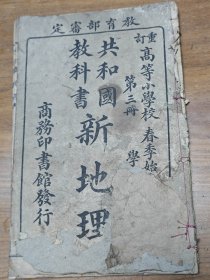 教育部審定
重訂
高等小學校
春季始
學
第三冊
共和國
教科書
新地理
商務印書館發行